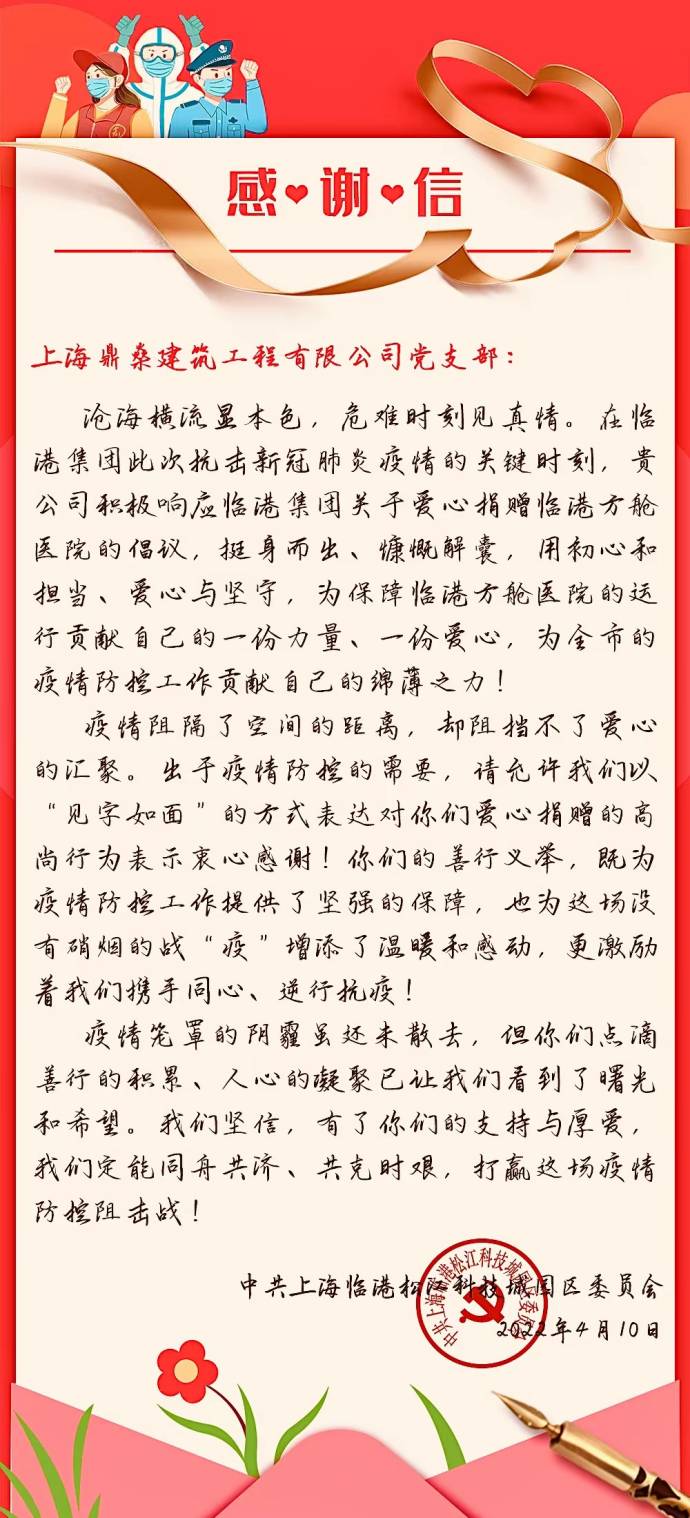 感❤谢❤信
上海鼎燊建筑工程有限公司党支部：
沧海横流显本色，危难时刻见真情。在临
港集团此次抗击新冠肺炎疫情的关键时刻，贵
公司积极响应临港集团关于爱心捐赠临港方舱
医院的倡议，挺身而出、慷慨解囊，用初心和
担当、爱心与坚守，为保障临港方舱医院的运
行贡献自己的一份力量、一份爱心，为全市的
疫情防控工作贡献自己的绵薄之力！
疫情阻隔了空间的距离，却阻挡不了爱心
的汇聚。出于疫情防控的需要，请允许我们以
“见字如面”的方式表达对你们爱心捐赠的高
尚行为表示衷心感谢！你们的善行义举，既为
疫情防控工作提供了坚强的保障，也为这场没
有硝烟的战“疫”增添了温暖和感动，更激励
着我们携手同心、逆行抗疫！
疫情笼罩的阴霾虽还未散去，但你们点滴
善行的积累、人心的凝聚已让我们看到了曙光
和希望。我们坚信，有了你们的支持与厚爱，
我们定能同舟共济、共克时艰，打赢这场疫情
防控阻击战！
中共上海临港松江科技城园区委员会
2022年4月10日
中共上海临港松江科技城园区委员会